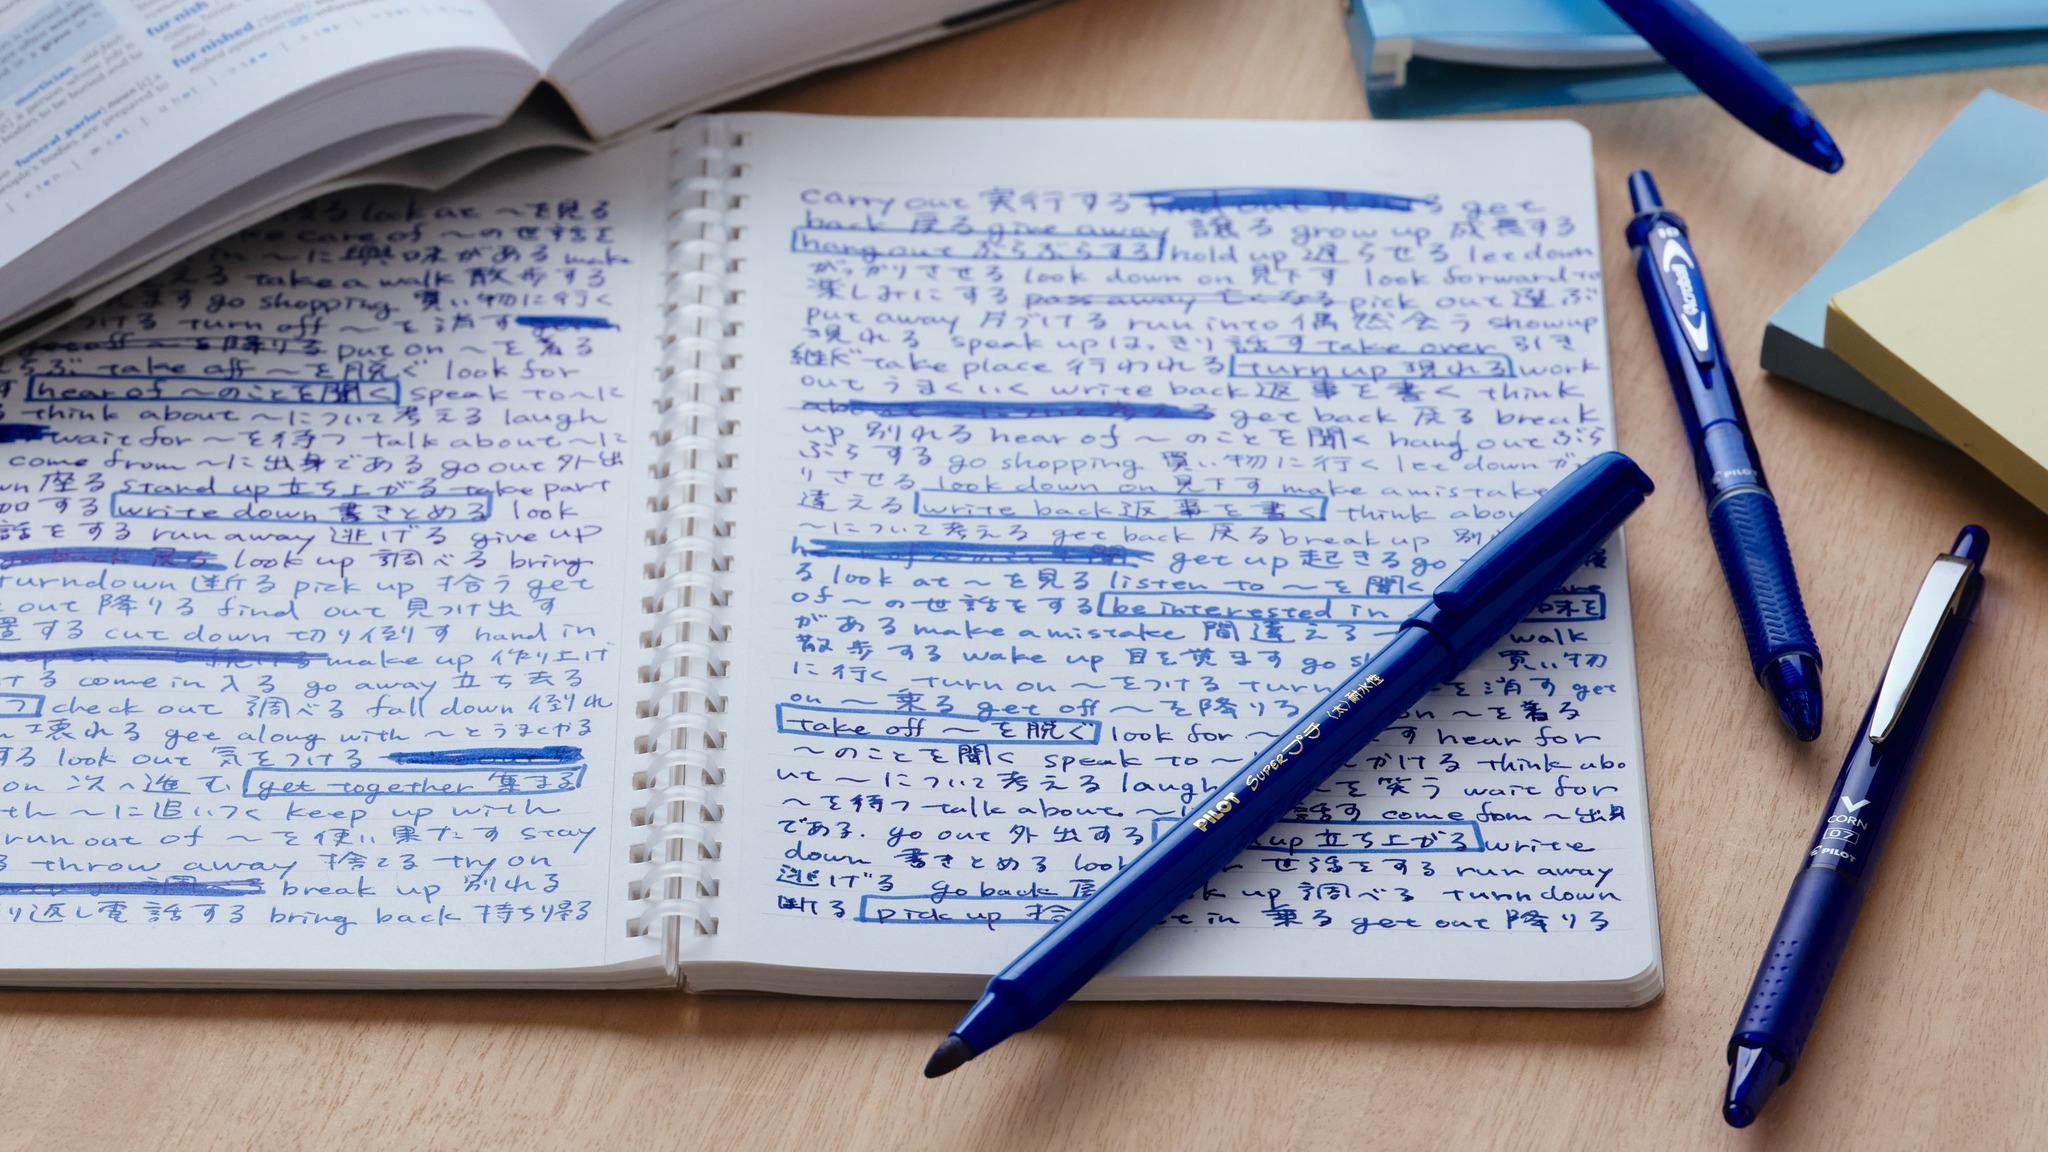 fur·nish
fur·nished
mortician
funeral parlor
look at ～を見る
take care of ～の世話を
in ～に興味がある make
える take a walk 散歩する
ます go shopping 買い物に行く
つける turn off ～を消す
off ～を降りる put on ～を着る
らぶ take off ～を脱ぐ look for
hear of ～のことを聞く speak to ～に
think about ～について考える laugh
wait for ～を待つ talk about ～に
come from ～に出身である go out 外出
down 座る stand up 立ち上がる take part
加する write down 書きとめる look
話をする run away 逃げる give up
戻る look up 調べる bring
turn down 断る pick up 拾う get
out 降りる find out 見つけ出す
置する cut down 切り倒す hand in
続ける make up 作り上げ
ける come in 入る go away 立ち去る
つ check out 調べる fall down 倒れ
壊れる get along with ～とうまくやる
する look out 気をつける
on 次へ進む get together 集まる
with ～に追いつく keep up with
run out of ～を使い果たす stay
る throw away 捨てる try on
break up 別れる
り返し電話する bring back 持ち帰る
carry out 実行する find out 見つける get
back 戻る give away 譲る grow up 成長する
hang out ぶらぶらする hold up 遅らせる let down
がっかりさせる look down on 見下す look forward to
楽しみにする pass away 亡くなる pick out 選ぶ
put away 片づける run into 偶然会う show up
現れる speak up はっきり話す take over 引き
継ぐ take place 行われる turn up 現れる work
out うまくいく write back 返事を書く think
about ～について考える get back 戻る break
up 別れる hear of ～のことを聞く hang out ぶら
ぶらする go shopping 買い物に行く let down がっか
りさせる look down on 見下す make a mistake
違える write back 返事を書く think abou
～について考える get back 戻る break up 別
get up 起きる go
る look at ～を見る listen to ～を聞く
of ～の世話をする be interested in 味を
がある make a mistake 間違える walk
散歩する wake up 目を覚ます go sh 買い物
に行く turn on ～をつける turn を消す get
on ～乗る get off ～を降りる on ～を着る
take off ～を脱ぐ look for ～ す hear for
～のことを聞く speak to ～ かける think abo
ut ～について考える laugh を笑う wait for
～を待つ talk about ～ 話す come from ～出身
である. go out 外出する up 立ち上がる write
down 書きとめる look 世話をする run away
逃げる go back 戻 up 調べる turn down
断る pick up 拾 get in 乗る get out 降りる
PILOT SUPERプチ〈太〉耐水性
10
Acroball
PILOT
V
CORN
07
PILOT